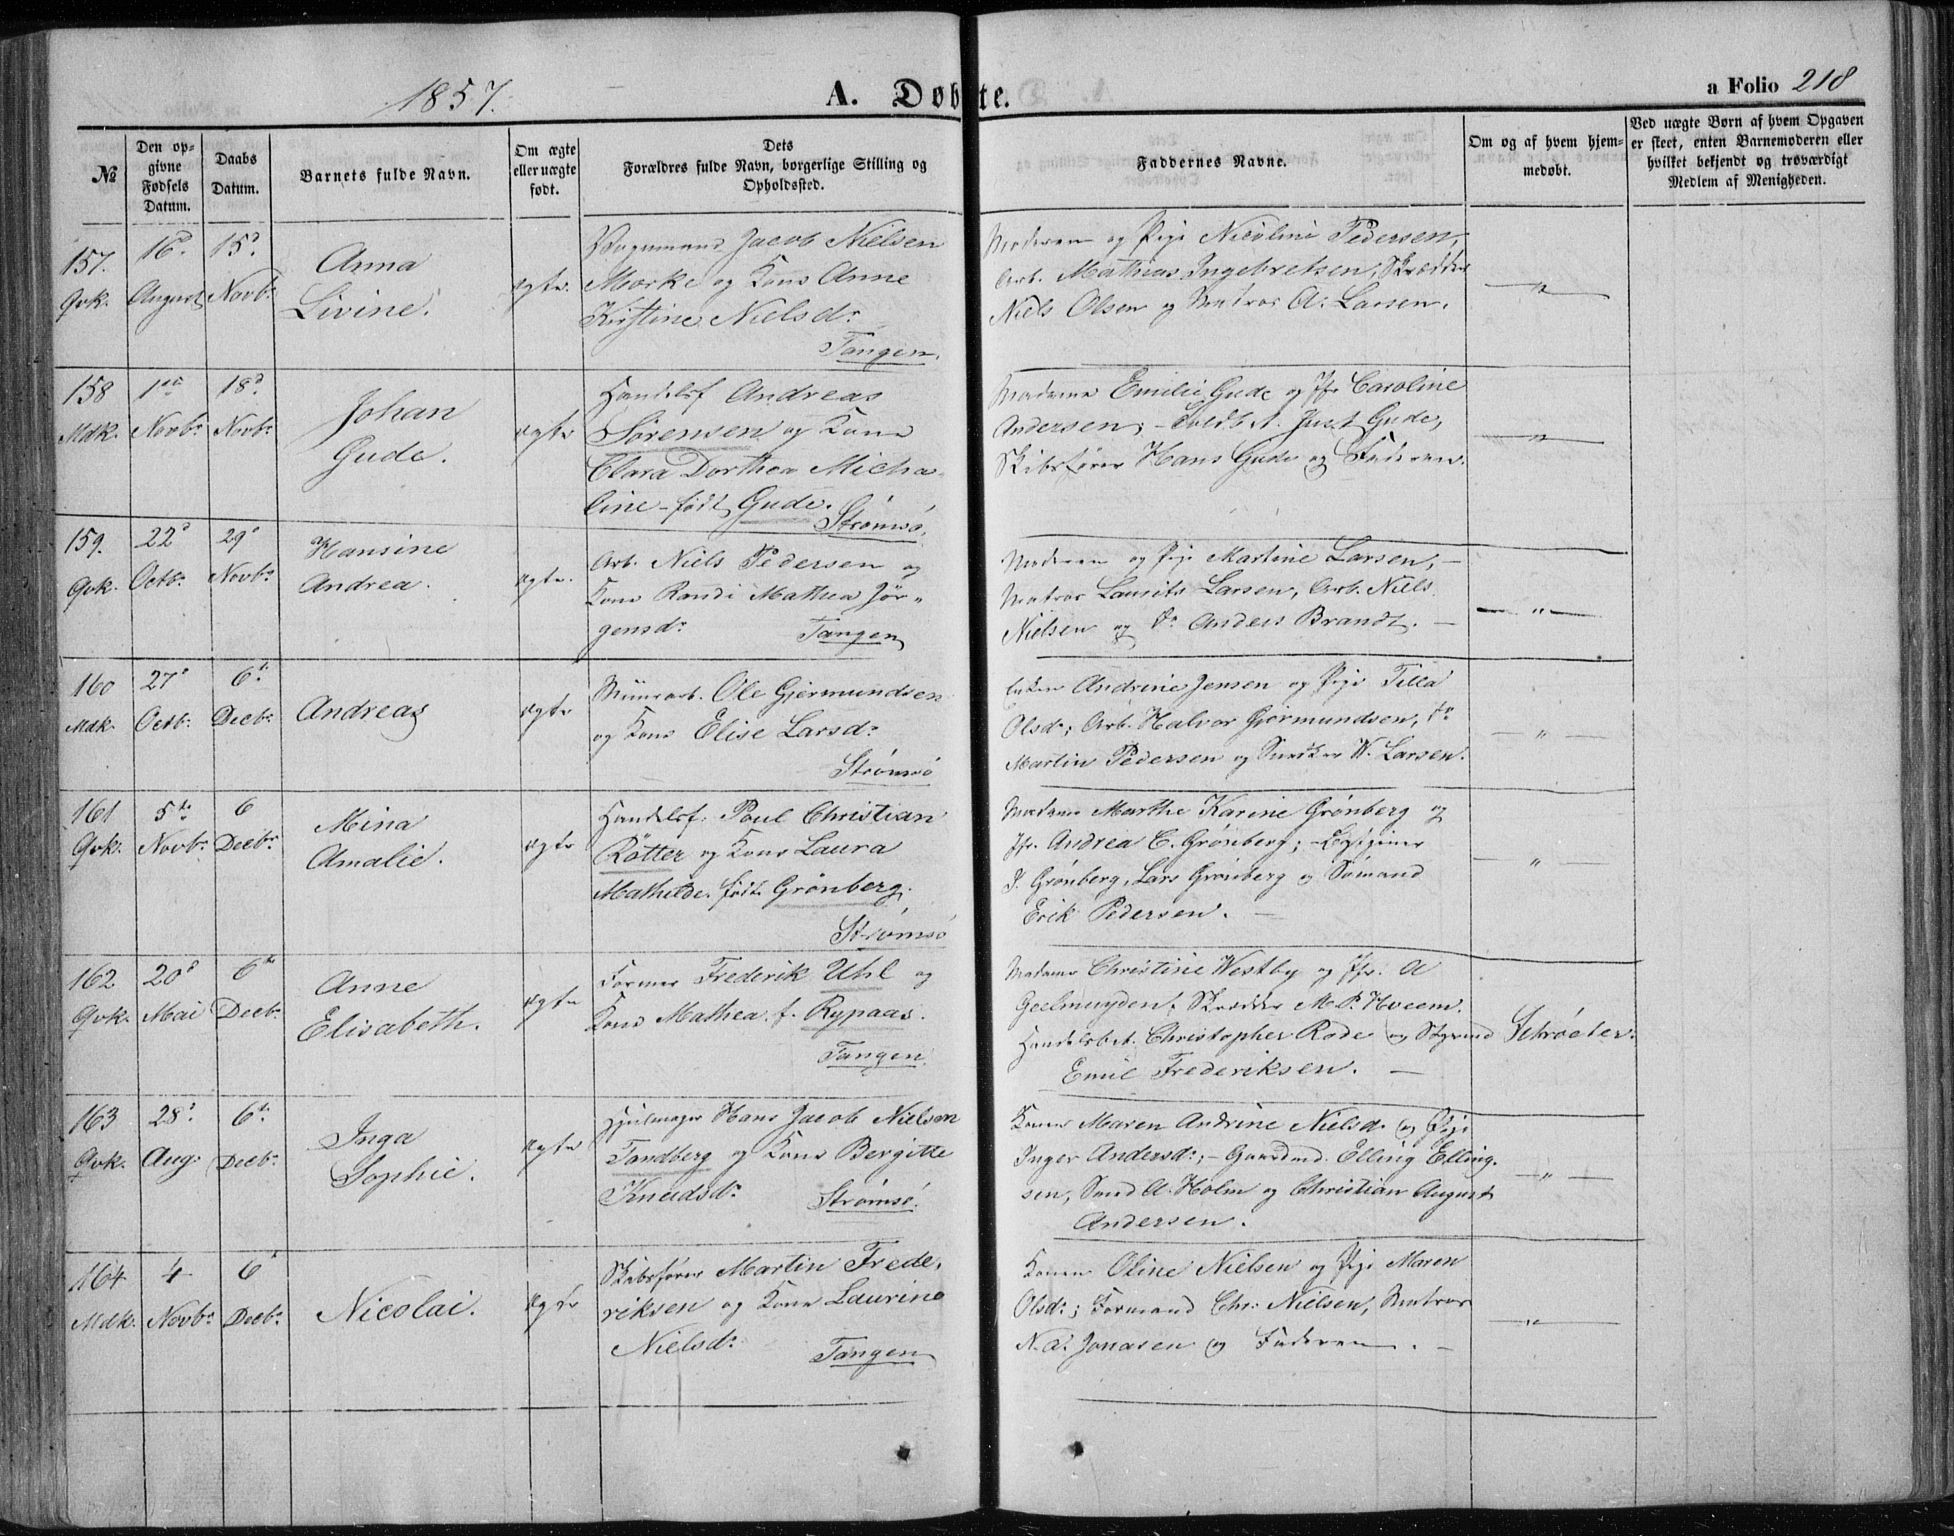 1857.
A. Døbte.
a Folio 218
№
Den opgivne Fødsels Datum.
Daabs Datum.
Barnets fulde Navn.
Om ægte eller uægte født.
Dets Forældres fulde Navn, borgerlige Stilling og Opholdssted.
Faddernes Navne.
Om og af hvem hjemmedøbt.
Ved uægte Børn af hvem Opgaven er skeet, enten Barnemoderen eller hvilket bekjendt og troværdigt Medlem af Menigheden.
157. Qvk.
16d August
15d Novbr
Anna
Livine.
ægte.
Vognmand Jacob Nielsen
Morke og Kone Anne
Kirstine Nielsdr
Tangen.
Moderen og Pige Nicoline Pedersen,
Arb. Mathias Ingebretsen, Skrædder
Niels Olsen og Matros A. Larsen.
— " —
158 Mdk.
1ste Novbr
18d Novbr
Johan
Gude.
ægte
Handelsf Andreas
Sørensen og Kone
Clara Dorthea Micha-
line - født Gude.
Strømsø.
Madame Emilie Gude og Jfr Caroline
Andersen; - Just Gude,
Skibsfører Hans Gude og Faderen.
— " —
159. Qvk.
22d Octbr
29d Novbr
Hansine
Andrea.
ægte.
Arb. Niels Pedersen og
Kone Randi Mathea Jør-
gensdr
Tangen
Moderen og Pige Martine Larsen, -
Matros Laurits Larsen, Arb. Niels
Nielsen og do Anders Brandt. -
— " —
160 Mdk.
27d Octbr
6te Decbr
Andreas
ægte
Muurarb. Ole Gjermundsen
og Kone Elise Larsdr
Strømsø
Enken Andrine Jensen og Pige Tilla
Olsdr; Arb. Halvor Gjermundsen, do
Martin Pedersen og Snedker W. Larsen.
— " —
161 Qvk.
5te Novbr
6 Decbr
Mina
Amalie.
ægte
Handelsf. Poul Christian
Røtter og Kone Laura
Mathilde. født Grønberg.
Strømsø
Madame Marthe Karine Grønberg og
Jfr. Andrea C. Grønberg; -
J. Grønberg, Lars Grønberg og Sømand
Erik Pedersen. -
— " —
162 Qvk.
20d Mai
6te Decbr
Anne
Elisabeth.
ægte
Former Frederik Uhl og
Kone Mathea f. Rypaas.
Tangen.
Madame Christine Westby og Jfr. A
Geelmuyden; Skrædder M. P. Hveem.
Handelsbet. Christopher Rode og Styrmd
Emil Frederiksen. -
Schrøeter.
163 Qvk.
28d Aug:
6te Decbr
Inga
Sophie.
ægte
Hjulmager Hans Jacob Nielsen
Tandberg og Kone Bergitte
Knudsdr
Strømsø.
Konen Maren Andrine Nielsd. og Pige
Inger Andersdr; - Gaardmd. Elling Elling-
sen, Smed A. Holm og Christian August
Andersen.
— " —
164 Mdk.
4 Novbr
6d Decbr
Nicolai.
ægte
Skibsfører Martin Frede-
riksen og Kone Laurine
Nielsdr
Tangen
Konen Oline Nielsen og Pige Maren
Olsdr; Formand Chr. Nielsen, Matros
N. A. Jonasen og Faderen. -
— " —